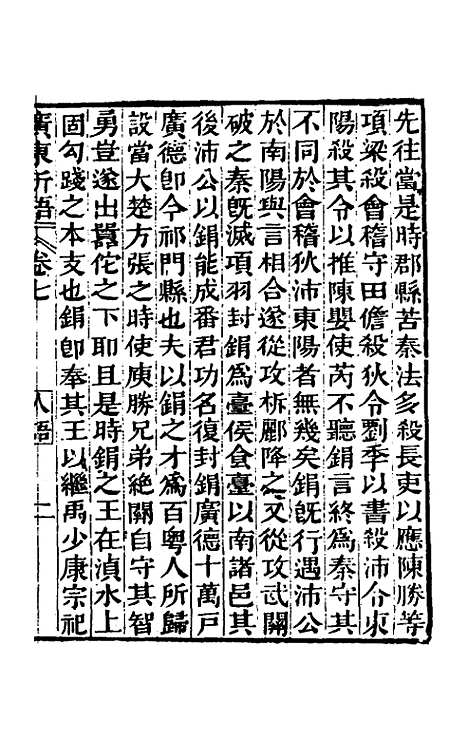 先往當是時郡縣苦秦法多殺長吏以應陳勝等
項梁殺會稽守田儋殺狄令劉季以書殺沛令東
陽殺其令以推陳嬰使芮不聽鋗言終爲秦守其
不同於會稽狄沛東陽者無幾矣鋗旣行遇沛公
於南陽與言相合遂從攻析酈降之又從攻武關
破之秦旣滅項羽封鋗爲臺侯食臺以南諸邑其
後沛公以鋗能成番君功名復封鋗廣德十萬戸
廣德卽今祁門縣也夫以鋗之才爲百粵人所歸
設當大楚方張之時使庾勝兄弟絶關自守其智
勇豈遂出囂佗之下耶且是時鋗之王在湞水上
固勾踐之本支也鋗卽奉其王以繼禹少康宗祀
廣東新語 卷七 人語 二